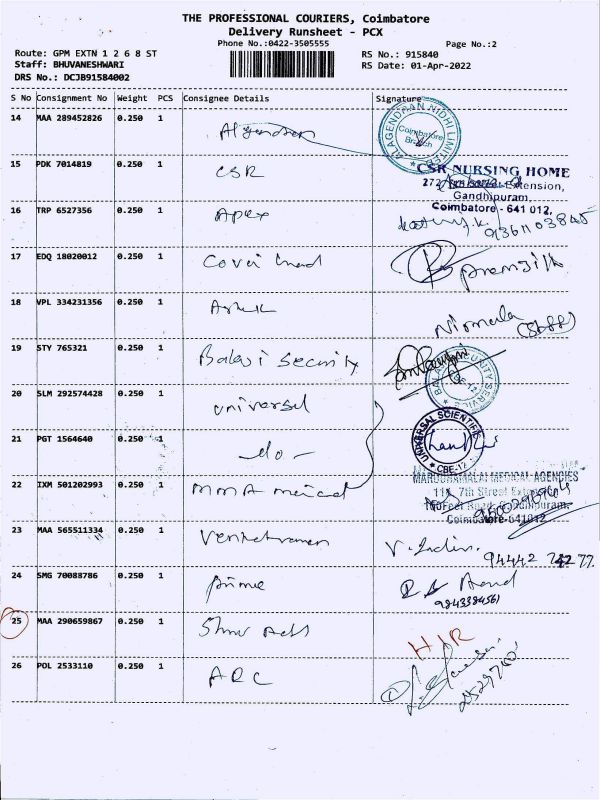 THE PROFESSIONAL COURIERS, Coimbatore
Delivery Runsheet - PCX
Phone No.:0422-3505555
Page No.:2
Route: GPM EXTN 1 2 6 8 ST
Staff: BHUVANESHWARI
DRS No.: DCJB91584002
RS No.: 915840
RS Date: 01-Apr-2022
S No Consignment No Weight PCS Consignee Details Signature
14 MAA 289452826 0.250 1
ALAGENDRAN NIDHI LIMITED
Coimbatore Branch
15 PDK 7014819 0.250 1 CSR
CSR NURSING HOME
272, Extension,
Gandhipuram,
Coimbatore - 641 012.
16 TRP 6527356 0.250 1 Apex
9361103845
17 EDQ 18020012 0.250 1
18 VPL 334231356 0.250 1
Nirmala
19 STY 765321 0.250 1 Balaji Security
20 SLM 292574428 0.250 1 universal
21 PGT 1564640 0.250 1 -do-
UNIVERSAL SCIENTIFIC
CBE-12
22 IXM 501202993 0.250 1 MMA medical
MARUDHAMALAI MEDICAL AGENCIES
7th Street
100 Feet Road, Gandhipuram,
Coimbatore-641012
23 MAA 565511334 0.250 1 Venketraman
24 SMG 70088786 0.250 1 prime
9843384561
25 MAA 290659867 0.250 1
26 POL 2533110 0.250 1 ARC